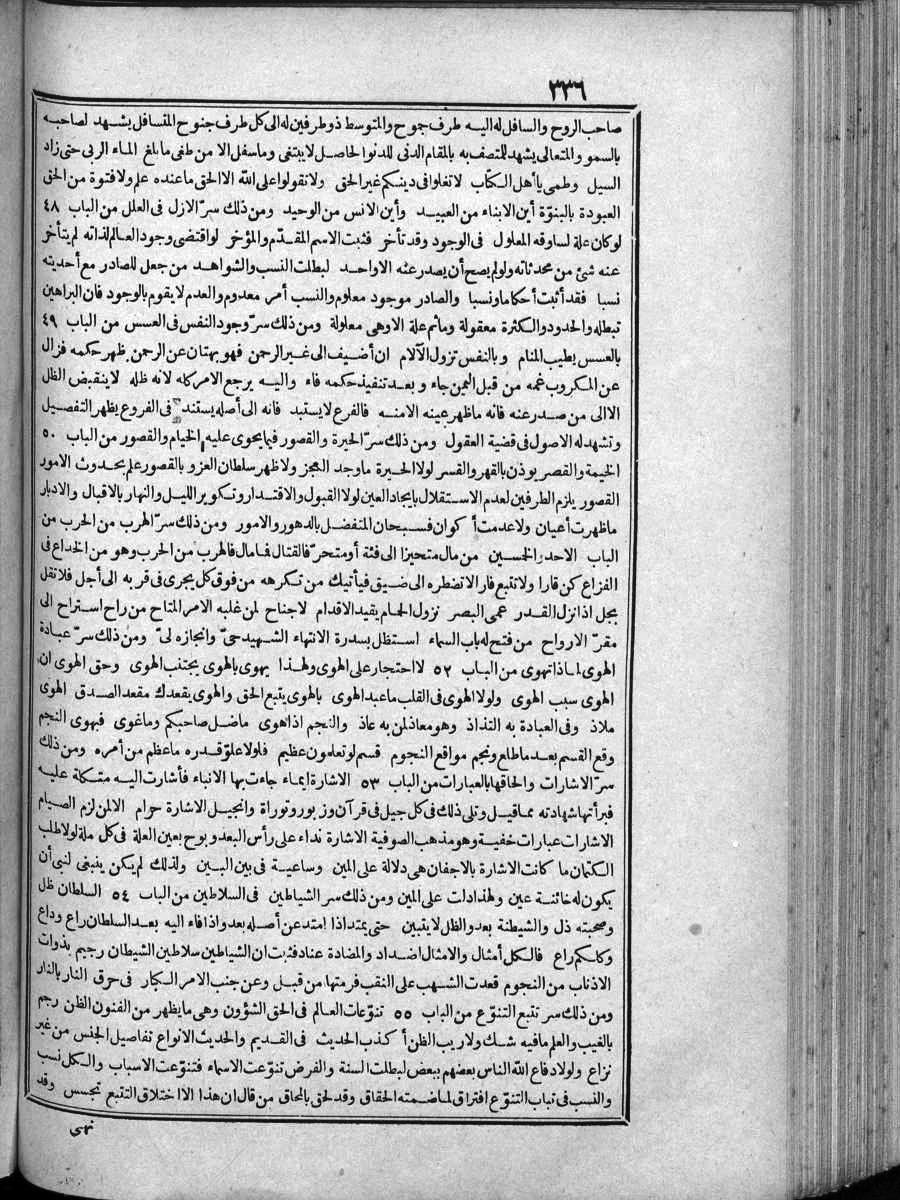 ٣٣٦
صاحب الروح والسافل له اليه طرف جموح والمتوسط ذو طرفين له الى كل طرف جنوح المتسافل يشهد لصاحبه
بالسمو والمتعالى يشهد للمتصف به بالمقام الدنى للدنو الحاصل لا يبتغى وما سفل الا من طغى ما بلغ الماء الربى حتى زاد
السيل وطمى يا أهل الكتاب لا تغلوا فى دينكم غير الحق ولا تقولوا على الله الا الحق ما عنده علم ولا فتوة من الحق
العبودة بالبنوّة أين الابناء من العبيد وأين الانس من الوحيد ومن ذلك سرّ الازل فى العلل من الباب ٤٨
لو كان علة لساوقه المعلول فى الوجود وقد تأخر فثبت الاسم المقدّم والمؤخر لو اقتضى وجود العالم لذاته لم يتأخر
عنه شئ من محدثاته ولو لم يصح أن يصدر عنه الا واحد لبطلت النسب والشواهد من جعل للصادر مع أحديته
نسبا فقد أثبت أحكاما ونسبا والصادر موجود معلوم والنسب أمر معدوم والعدم لا يقوم بالوجود فان البراهين
تبطله والحدود والكثرة معقولة وما ثم علة الا وهى معلولة ومن ذلك سرّ وجود النفس فى العسس من الباب ٤٩
بالعسس يطيب المنام وبالنفس تزول الآلام ان أضيف الى غير الرحمن فهو بهتان عن الرحمن ظهر حكمه فزال
عن المكروب غمه من قبل اليمن جاء وبعد تنفيذ حكمه فاء واليه يرجع الامر كله لانه ظله لا ينقبض الظل
الا الى من صدر عنه فانه ما ظهر عينه الا منه فالفرع لا يستبد فانه الى أصله يستند فى الفروع يظهر التفصيل
وتشهد له الاصول فى قضية العقول ومن ذلك سرّ الحيرة والقصور فيما يحوى عليه الخيام والقصور من الباب ٥٠
الخيمة والقصر يوذن بالقهر والقسر لولا الحيرة ما وجد العجز ولا ظهر سلطان العز وبالقصور علم بحدوث الامور
القصور يلزم الطرفين لعدم الاستقلال بايجاد العين لولا القبول والاقتدار وتكوير الليل والنهار بالاقبال والادبار
ما ظهرت أعيان ولا عدمت أكوان فسبحان المتفضل بالدهور والامور ومن ذلك سرّ الهرب من الحرب من
الباب الاحد والخمسين من مال متحيزا الى فئة أو متحرّفا لقتال فمال فالهرب من الحرب وهو من الخداع فى
الفزاع كن قارا ولا تتبع فارا لا تضطره الى ضيق فيأتيك من تكرهه من فوق كل يجرى فى قربه الى أجل فلا تقل
بجل اذا نزل القدر عمى البصر نزول الحمام يقيد الاقدام لا جناح لمن غلبه الامر المتاح من راح استراح الى
مقرّ الارواح من فتح له باب السماء استظل بسدرة الانتهاء الشهيد حىّ وانجازه لىّ ومن ذلك سرّ عبادة
الهوى لماذا تهوى من الباب ٥٢ لا احتجار على الهوى ولهذا يهوى بالهوى يجتنب الهوى وحق الهوى ان
الهوى سبب الهوى ولولا الهوى فى القلب ما عبد الهوى بالهوى يتبع الحق والهوى يقعدك مقعد الصدق الهوى
ملاذ وفى العبادة به التذاذ وهو معاذ لمن به عاذ والنجم اذا هوى ما ضل صاحبكم وما غوى فبهوى النجم
وقع القسم بعد ما طلع ونجم مواقع النجوم قسم لو تعلمون عظيم فلولا علوّ قدره ما عظم من أمره ومن ذلك
سرّ الاشارات والحاقها بالعبارات من الباب ٥٣ الاشارة ايماء جاءت بها الانباء فأشارت اليه متكلة عليه
فبرأتها شهادته مما قيل وتلى ذلك فى كل جيل فى قرآن وزبور وتوراة وانجيل الاشارة حرام الا لمن لزم الصيام
الاشارات عبارات خفية وهو مذهب الصوفية الاشارة نداء على رأس البعد وبوح بعين العلة فى كل ملة لولا طلب
الكتمان ما كانت الاشارة بالاجفان هى دلالة على المين وساعية فى بين البين ولذلك لم يكن ينبغى لنبى أن
يكون له خائنة عين ولهذا دلت على المين ومن ذلك سر الشياطين فى السلاطين من الباب ٥٤ السلطان ظل
وصحبته ذل والشيطنة بعد والظل لا يتبين حتى يمتد اذا امتد عن أصله بعد واذا فاء اليه بعد السلطان راع وداع
وكلكم راع فالكل أمثال والامثال اضداد والمضادة عناد فثبت ان الشياطين سلاطين الشيطان رجيم بذوات
الاذناب من النجوم قعدت الشهب على النقب فرمتها من قبل وعن جنب الامر الكبار فى حرق النار بالنار
ومن ذلك سر تتبع التنوّع من الباب ٥٥ تنوّعات العالم فى الحق الشؤون وهى ما يظهر من الفنون الظن رجم
بالغيب والعلم ما فيه شك ولا ريب الظن أكذب الحديث فى القديم والحديث الانواع تفاصيل الجنس من غير
نزاع ولولا دفاع الله الناس بعضهم ببعض لبطلت السنة والفرض تنوّعت الاسماء فتنوّعت الاسباب والكل نسب
والنسب فى تباب التنوّع افتراق لما ضمته الحقاق وقد لحق بالمحاق من قال ان هذا الا اختلاق التتبع تجسس وقد
نهى